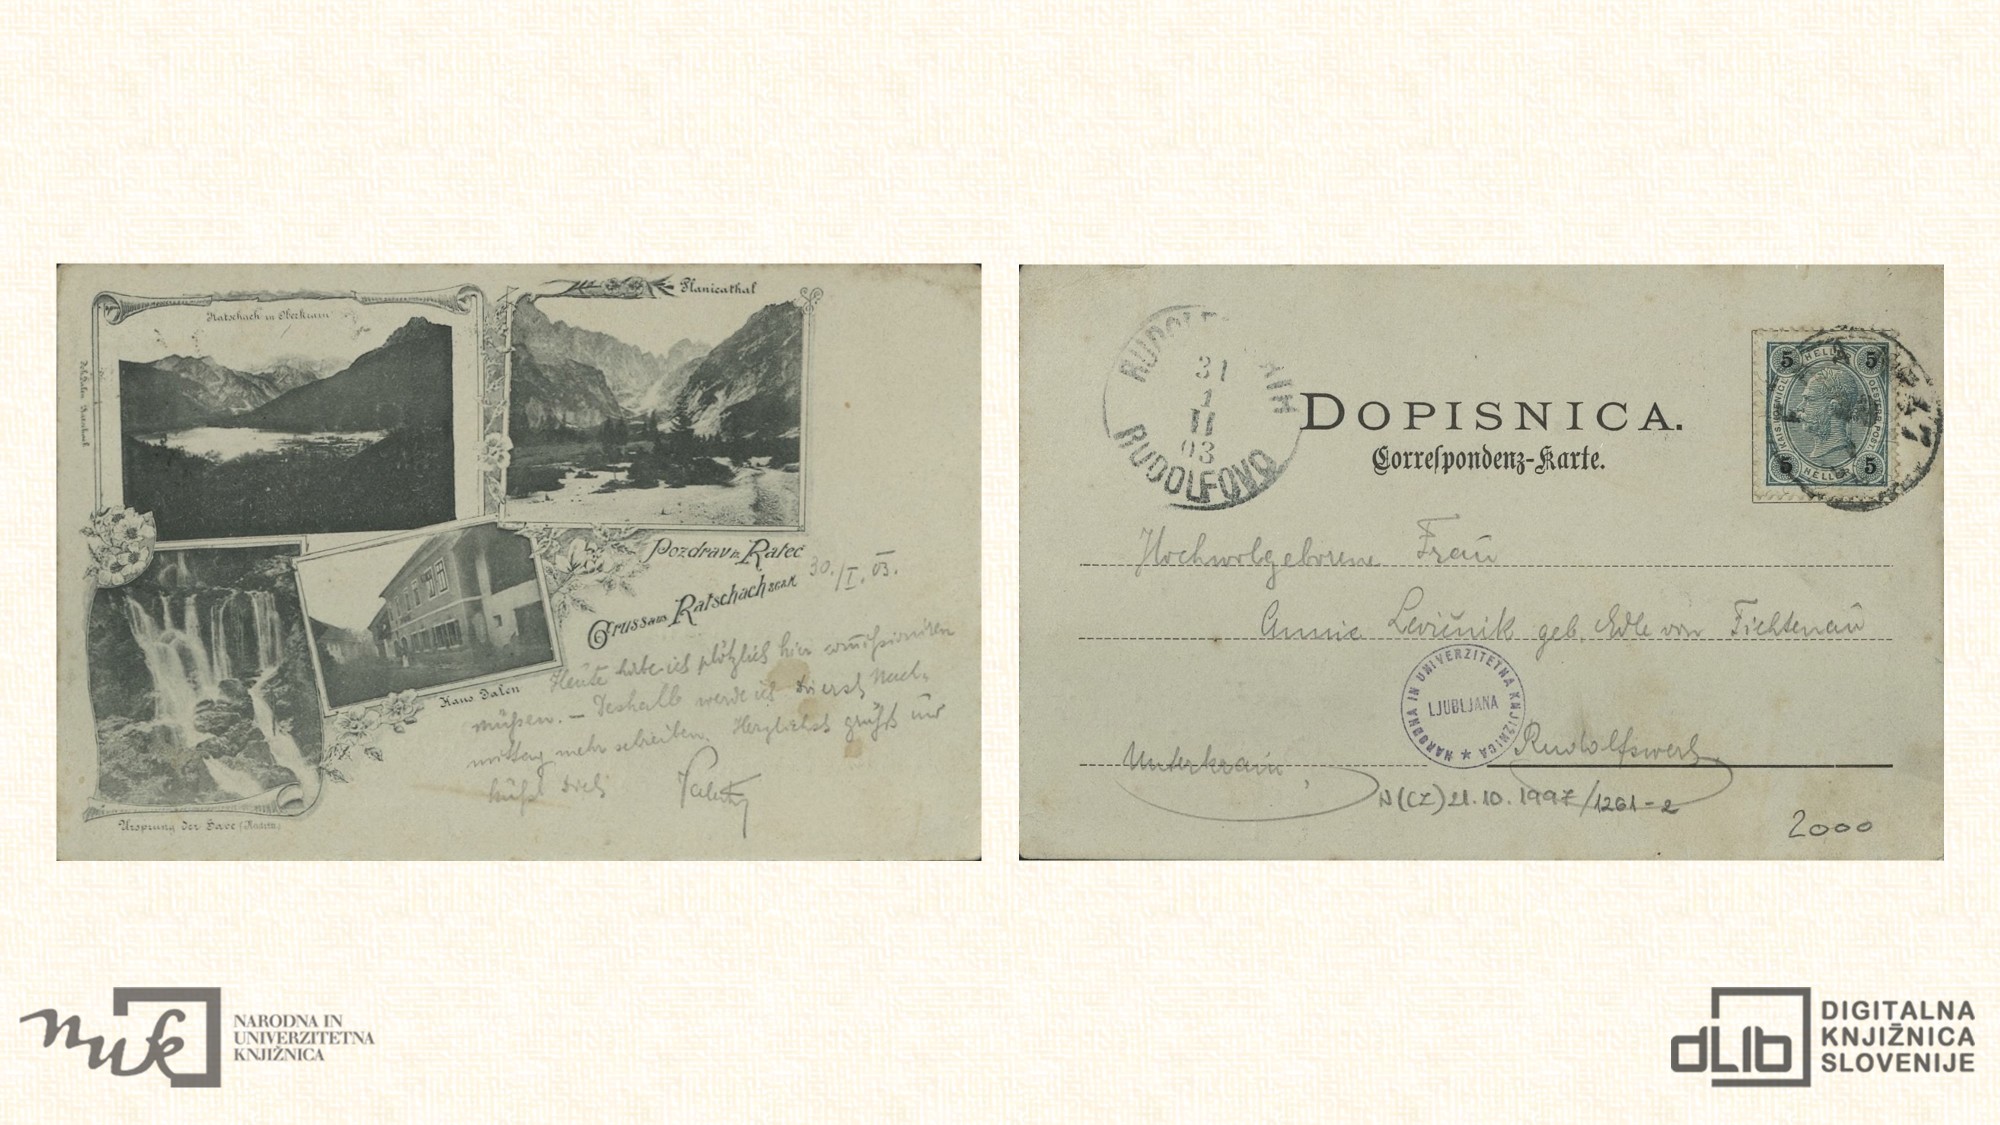 Ratschach in Oberkrain
Planicathal
Pozdrav iz Rateč
30./I. 03.
Gruss aus Ratschach
Heute habe ich plötzlich hier
müssen. – Deshalb werde ich erst Nach-
mittag mehr schreiben. Herzlichst grüßt und
küßt Dich
Haus Dalen
Ursprung der Save
RUDOLF
31
1
II
03
RUDOLFOVO
DOPISNICA.
Correspondenz-Karte.
5 HELLER 5
5 HELLER 5
Hochwolgeborene Frau
Annie Levičnik geb. Edle von Fichtenau
NARODNA IN UNIVERZITETNA KNJIŽNICA
LJUBLJANA
Rudolfswert
Unterkrain
N(CZ) 21.10.1997/1261-2
2000
nuk
NARODNA IN
UNIVERZITETNA
KNJIŽNICA
dLib
DIGITALNA
KNJIŽNICA
SLOVENIJE